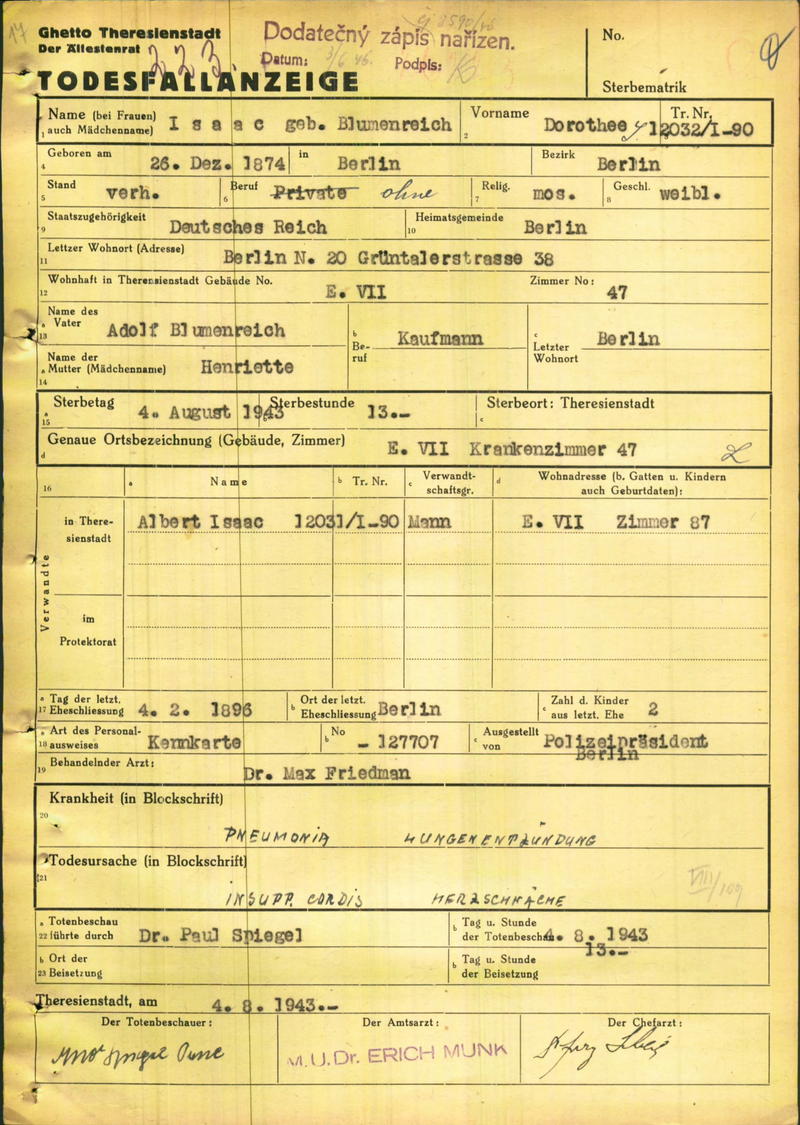 Ghetto Theresienstadt
Der Ältestenrat
Dodatečný zápis nařízen.
Datum: Podpis:
No.
Sterbematrik
TODESFALLANZEIGE
Name (bei Frauen) auch Mädchenname) 1 Isaac geb. Blumenreich Vorname 2 Dorothee Tr. Nr. 12032/I-90
Geboren am 4 26. Dez. 1874 in Berlin Bezirk Berlin
Stand 5 verh. Beruf 6 Private ohne Relig. 7 mos. Geschl. 8 weibl.
Staatszugehörigkeit 9 Deutsches Reich Heimatsgemeinde 10 Berlin
Lettzer Wohnort (Adresse) 11 Berlin N. 20 Grüntalerstrasse 38
Wohnhaft in Theresienstadt Gebäude No. 12 E. VII Zimmer No: 47
Name des Vater a 13 Adolf Blumenreich b Beruf Kaufmann c Letzter Wohnort Berlin
Name der Mutter (Mädchenname) a 14 Henriette
Sterbetag a 15 4. August 1943 Sterbestunde 13.- Sterbeort: Theresienstadt c
Genaue Ortsbezeichnung (Gebäude, Zimmer) d E. VII Krankenzimmer 47
16 a Name b Tr. Nr. c Verwandtschaftsgr. d Wohnadresse (b. Gatten u. Kindern auch Geburtdaten):
Verwandte
in Theresienstadt Albert Isaac 12031/I-90 Mann E. VII Zimmer 87
im Protektorat
a Tag der letzt. 17 Eheschliessung 4. 2. 1896 b Ort der letzt. Eheschliessung Berlin Zahl d. Kinder c aus letzt. Ehe 2
a Art des Personal- 18 ausweises Kennkarte No b - 127707 Ausgestellt c von Polizeipräsident Berlin
Behandelnder Arzt: 19 Dr. Max Friedman
Krankheit (in Blockschrift)
20
PNEUMONIA LUNGENENTZÜNDUNG
Todesursache (in Blockschrift)
21
INSUFF. CORDIS HERZSCHWÄCHE
VIII/109
a Totenbeschau 22 führte durch Dr. Paul Spiegel b Tag u. Stunde der Totenbeschau 4. 8. 1943 13.-
b Ort der 23 Beisetzung b Tag u. Stunde der Beisetzung
Theresienstadt, am 4. 8. 1943.-
Der Totenbeschauer: Der Amtsarzt: Der Chefarzt:
M.U.Dr. ERICH MUNK